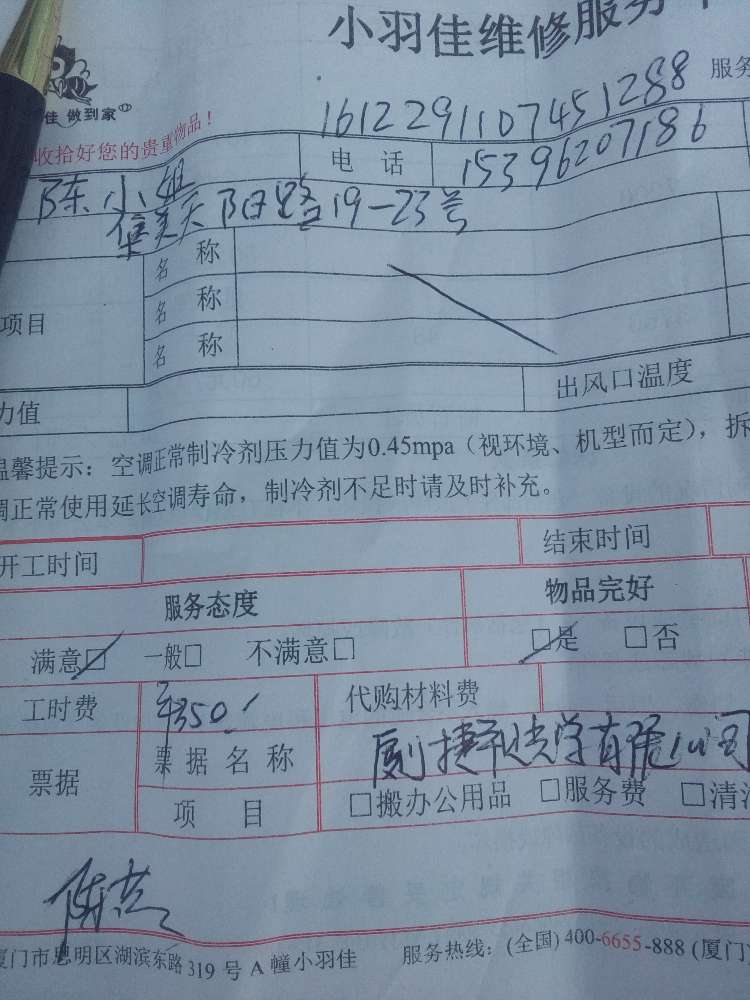 小羽佳维修服务
佳 做到家
服务
16122911074512 88
收拾好您的贵重物品！
电 话 15396207186
陈小姐
集美天阳路19-23号
名 称
项目 名 称
名 称
力值 出风口温度
温馨提示：空调正常制冷剂压力值为0.45mpa（视环境、机型而定），拆
调正常使用延长空调寿命，制冷剂不足时请及时补充。
开工时间 结束时间
服务态度 物品完好
满意☑ 一般□ 不满意□ ☑是 □否
工时费 ¥350 代购材料费
票据 票据名称 光学有限公司
项 目 □搬办公用品 □服务费 □清
陈
厦门市思明区湖滨东路319号A幢小羽佳 服务热线：(全国) 400-6655-888 (厦门)